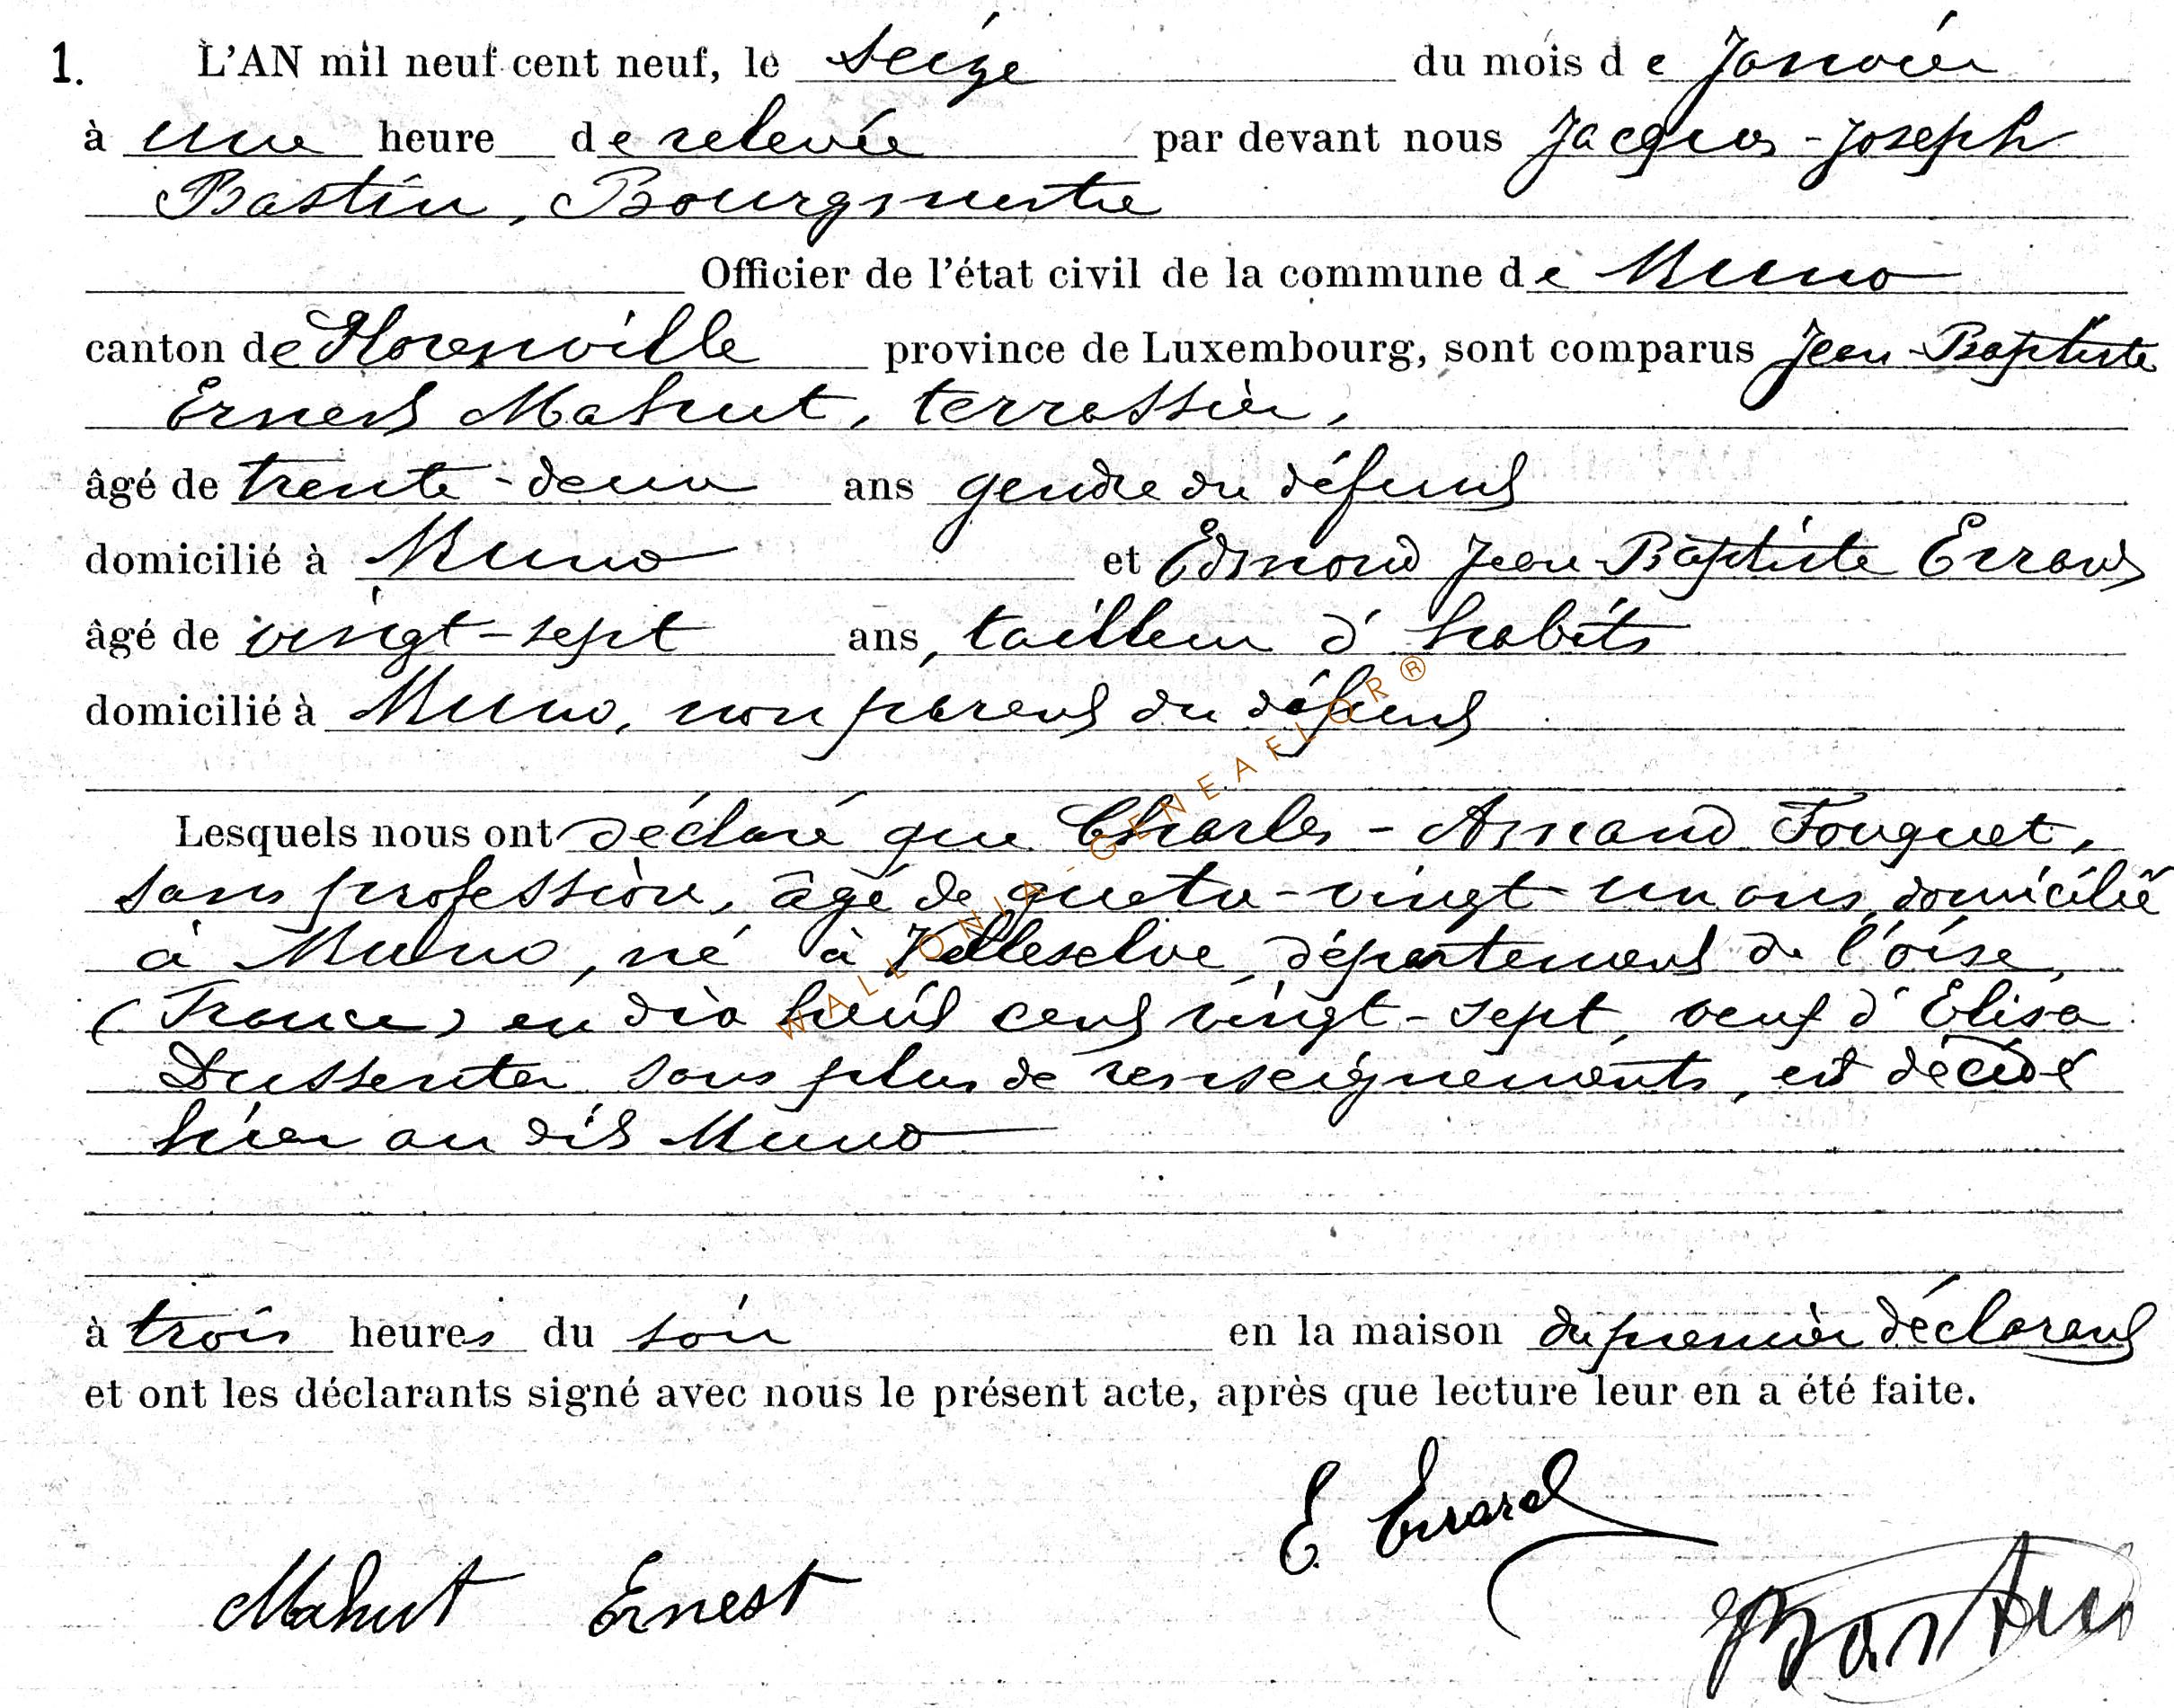 1. L'AN mil neuf cent neuf, le seize du mois de Janvier
à une heure de relevée par devant nous Jacques-Joseph
Bastin, Bourgmestre
Officier de l'état civil de la commune de Muno
canton de Florenville province de Luxembourg, sont comparus Jean-Baptiste
Ernest Mahut, terrassier,
âgé de trente-deux ans gendre du défunt
domicilié à Muno et Edmond Jean-Baptiste Errard
âgé de vingt-sept ans, tailleur d'habits
domicilié à Muno, non parent du défunt
Lesquels nous ont déclaré que Charles-Armand Fouquet,
sans profession, âgé de quatre-vingt-un ans, domicilié
à Muno, né à Villeselve, département de l'oise,
(France) en dix huit cent vingt-sept, veuf d'Elisa
Dussenter sans plus de renseignements, est décédé
hier au dit Muno
à trois heures du soir en la maison du premier déclarant
et ont les déclarants signé avec nous le présent acte, après que lecture leur en a été faite.
E. Errard
Mahut Ernest
JBastin
WALLONIA-GENEAFLOR®